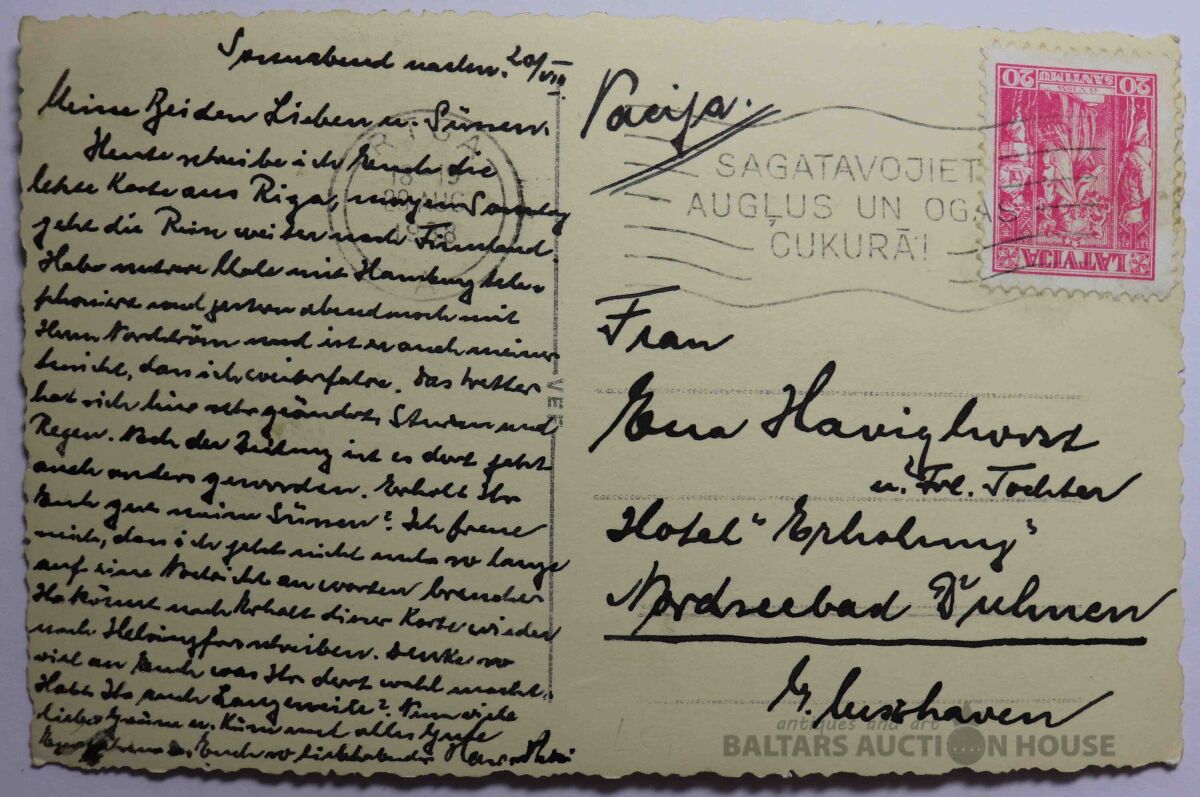 Sonnabend nachm. 20/VIII.
Meine Beiden Lieben u. Süssen.
Heute schreibe ich Euch die
letzte Karte aus Riga, morgen Sonntag
geht die Reise weiter nach Finnland
Habe mehrere Male mit Hamburg tele-
phoniert und gestern abend noch mit
Herrn Nordström und ist er auch meiner
Ansicht, dass ich weiterfahre. Das Wetter
hat sich hier sehr geändert, Sturm und
Regen. Nach der Zeitung ist es dort jetzt
auch anders geworden. Erholt Ihr
Euch gut meine Süssen? Ich freue
mich, dass ich jetzt nicht mehr so lange
auf eine Nachricht zu warten brauche.
Ihr könnt nach Erhalt dieser Karte wieder
nach Helsingfors schreiben. Denke so
viel an Euch was Ihr dort wohl macht.
Habt Ihr auch Langeweile? Nun viele
liebe Grüsse u. Küsse und alles Gute
Euch so liebhabender
VacIja.
RIGA
1938
SAGATAVOJIET
AUGĻUS UN OGAS
CUKURĀ!
20 SANTIMU 20
LATVIJA
Frau
Ena Havighorst
u. Frl. Tochter
Hotel "Erholung"
Nordseebad Duhnen
b/ Cuxhaven
antiques and art
BALTARS AUCTION HOUSE